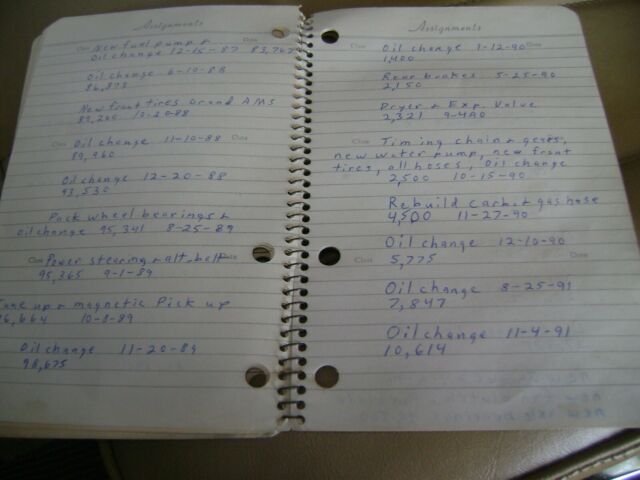 Assignments
New fuel pump &
Oil change 12-15-87 83,767
Oil change 6-10-88
86,893
New front tires Grand AMs
89,200 10-20-88
Oil change 11-10-88
89,960
Oil change 12-20-88
93,530
Pack wheel bearings &
oil change 95,341 8-25-89
Class Power steering & alt. belt Date
95,365 9-1-89
Tune up & magnetic Pick up
96,664 10-8-89
Oil change 11-20-89
98,675
Assignments
Class Oil change 1-12-90 Date
1,400
Rear brakes 5-25-90
2,150
Dryer & Exp. Valve
2,321 9-4-90
Class Timing chain & gears,
new water pump, new front
tires, all hoses, Oil change
2,500 10-15-90
Rebuild Carb. & gas hose
4,500 11-27-90
Oil change 12-10-90
Class 5,775 Date
Oil change 8-25-91
7,847
Oil change 11-4-91
10,614